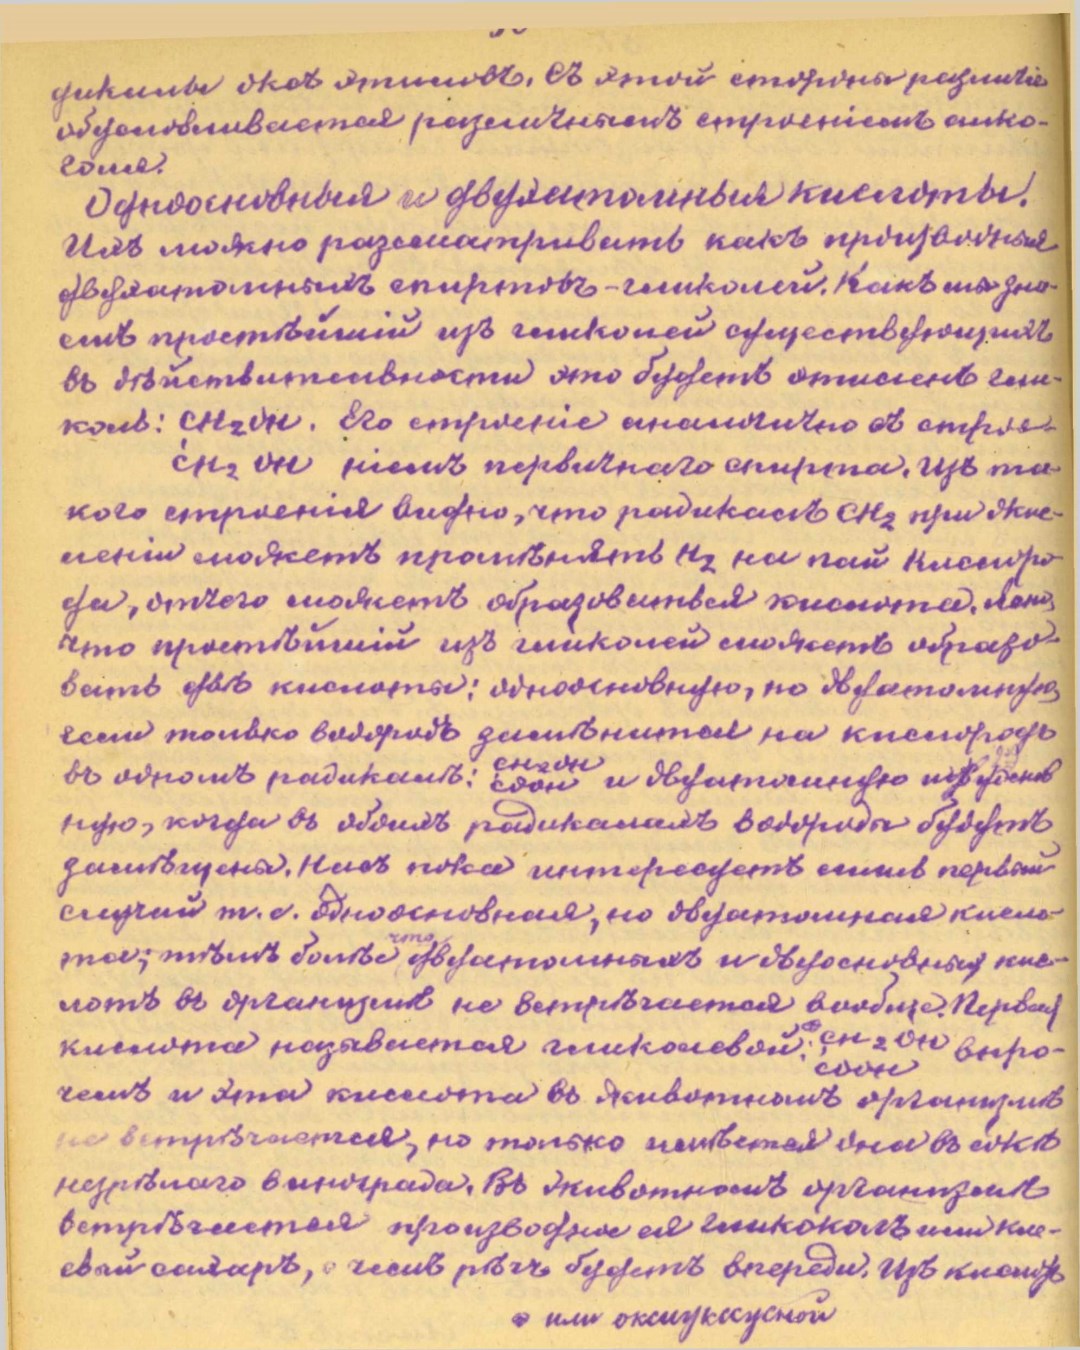 дикалы оба этиловъ. Съ этой стороны различіе
обусловливается различнымъ строеніемъ алко-
голя.
Одноосновныя и двухатомныя кислоты.
Ихъ можно разсматривать какъ производныя
двухатомныхъ спиртовъ-гликолей. Какъ мы зна-
емъ простѣйшій изъ гликолей существующихъ
въ дѣйствительности это будетъ этиленъ гли-
коль: CH2OH. Его строеніе аналогично съ строе-
CH2OH ніемъ первичнаго спирта. Изъ та-
кого строенія видно, что радикалъ CH2 при окис-
леніи можетъ промѣнять H2 на пай кислоро-
да, отчего можетъ образоваться кислота. Ясно,
что простѣйшій изъ гликолей можетъ образо-
вать двѣ кислоты: одноосновную, но двуатомную,
если только водородъ замѣнится на кислородъ
въ одномъ радикалѣ: CH2OH
COOH и двуатомную и двуоснов
ную, когда въ обоихъ радикалахъ водороды будутъ
замѣщены. Насъ пока интересуетъ лишь первый
случай т.е. одноосновная, но двуатомная кисло-
та; тѣмъ болѣе что двуатомныхъ и двуосновныхъ кис-
лотъ въ организмѣ не встрѣчается вообще. Первая
кислота называется гликолевой: CH2OH
COOH впро-
чемъ и эта кислота въ животномъ организмѣ
не встрѣчается, но только имѣется она въ сокѣ
незрѣлаго винограда. Въ животномъ организмѣ
встрѣчается производное ея гликоколъ или кле-
евый сахаръ, о чемъ рѣчь будетъ впереди. Изъ кислотъ
или оксиуксусной